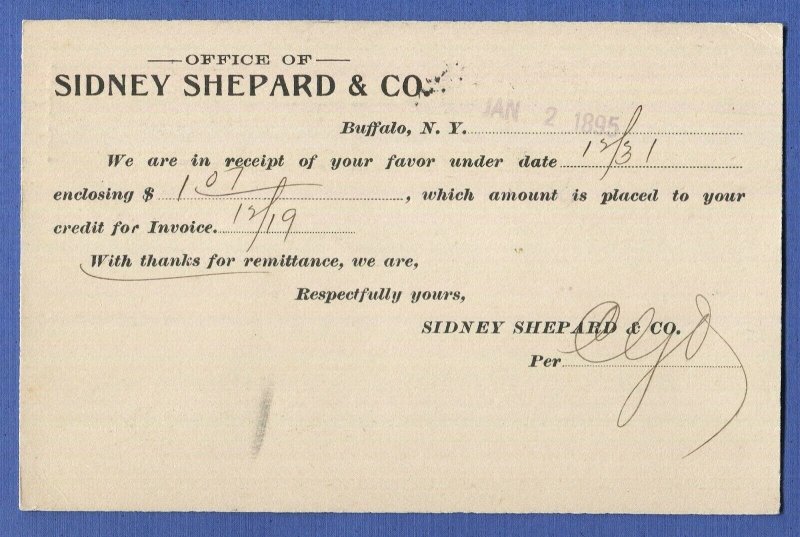 OFFICE OF
SIDNEY SHEPARD & CO.
Buffalo, N. Y. JAN 2 1895
We are in receipt of your favor under date 12/31
enclosing $ 1 07, which amount is placed to your
credit for Invoice. 12/19
With thanks for remittance, we are,
Respectfully yours,
SIDNEY SHEPARD & CO.
Per